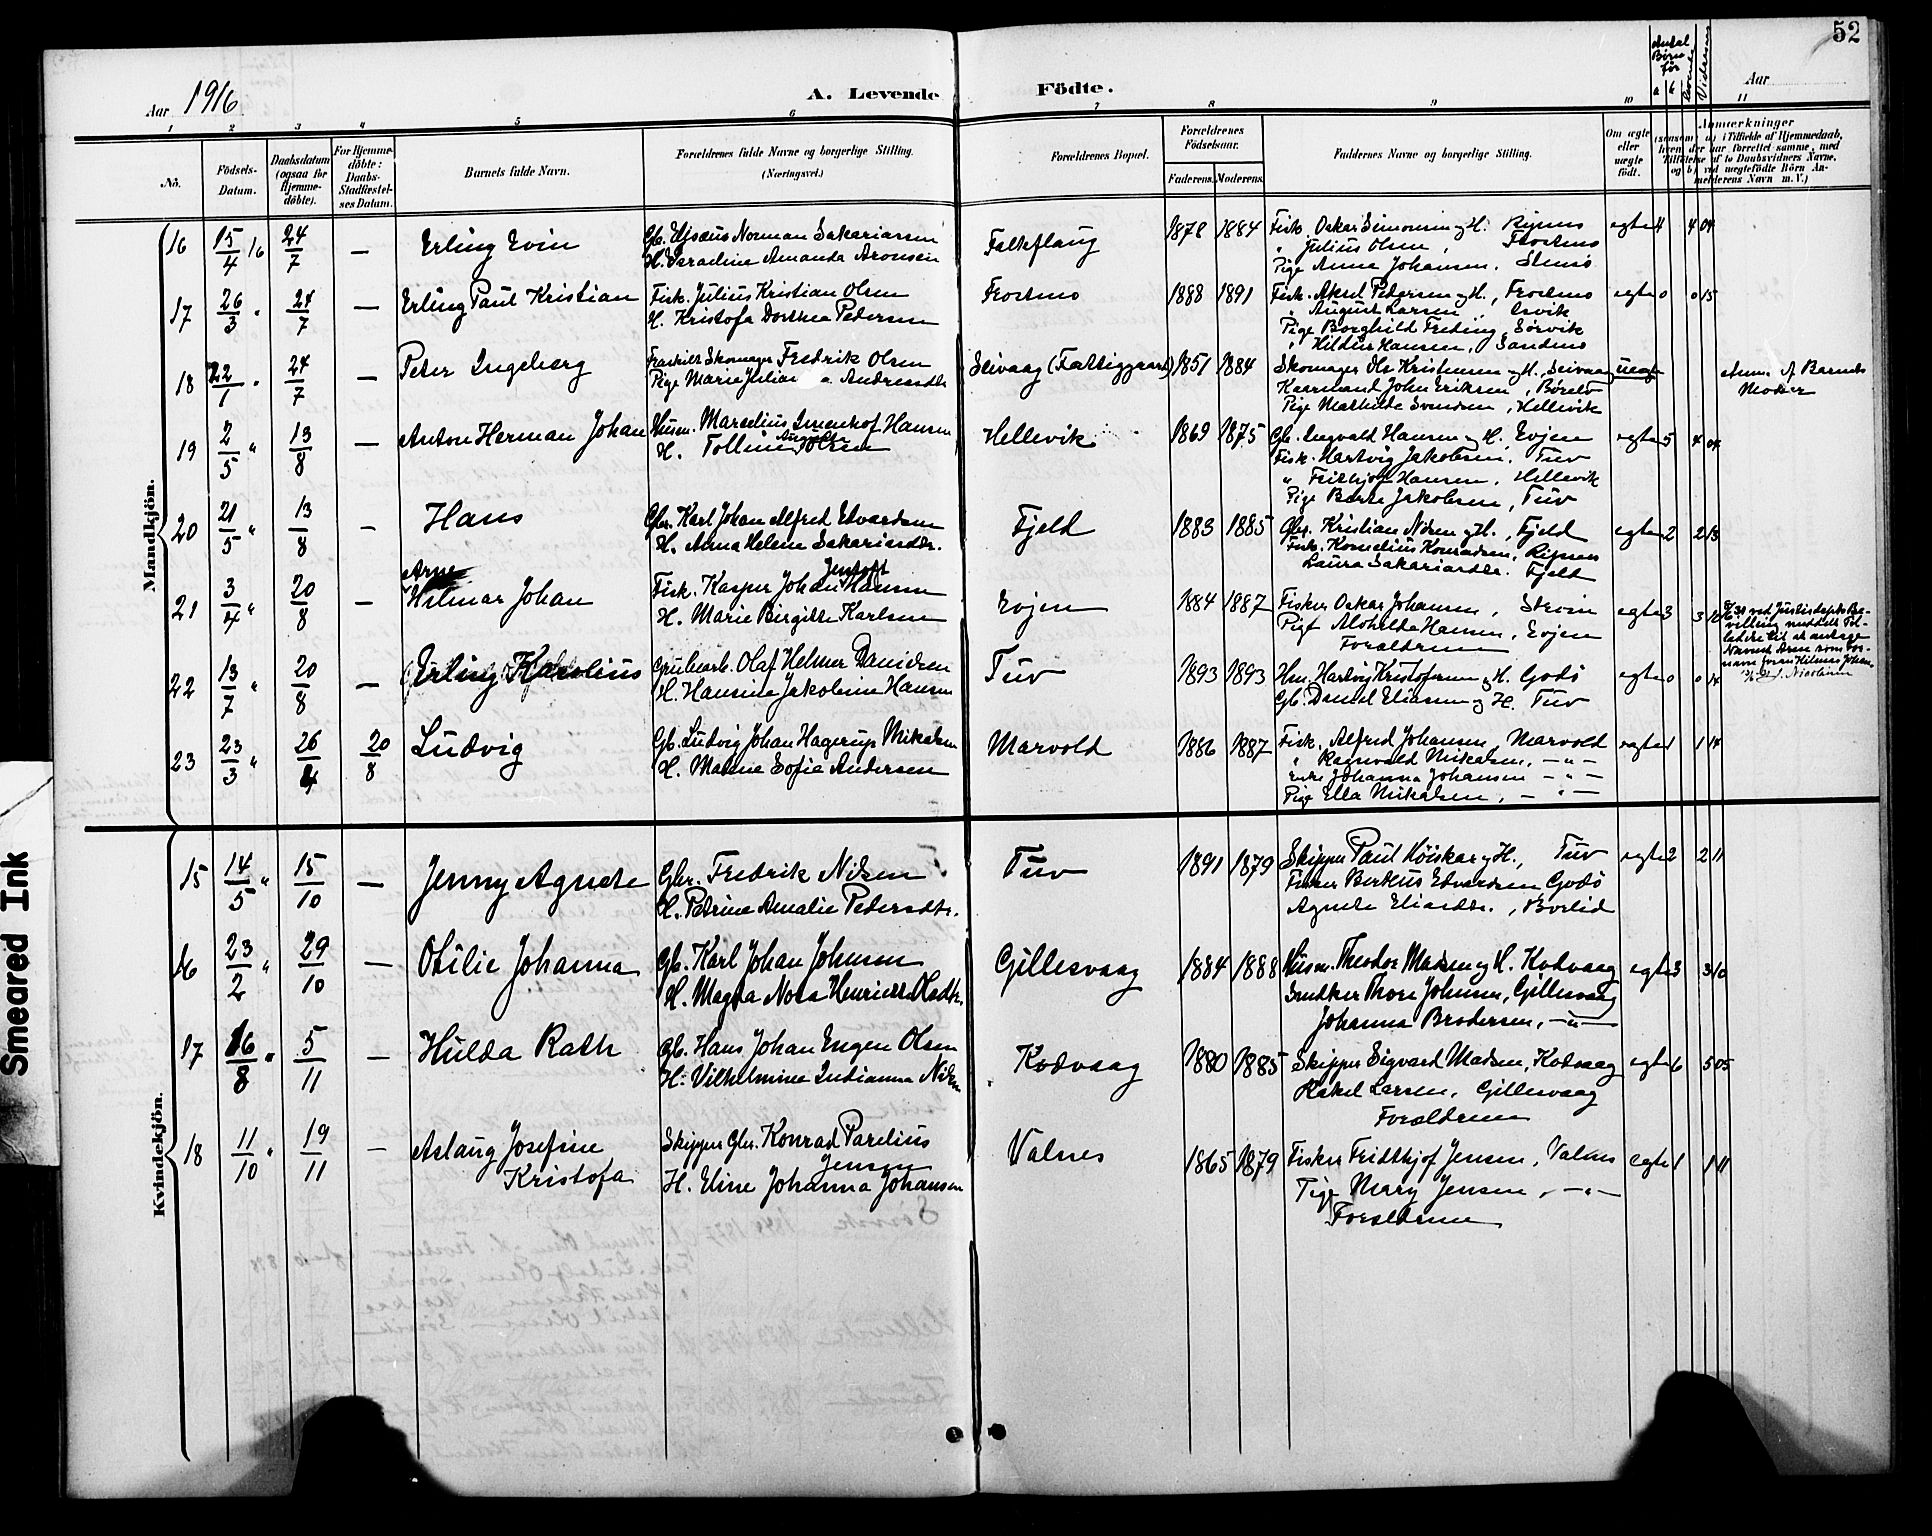 52
Aar 1916
A. Levende
Födte.
Antal Børn før
Aar
1 2 3 4 5 6 7 8 9 10 11
No.
Födsels-Datum.
Daabsdatum (ogsaa for Hjemme-döbte).
For Hjemme-döbte: Daabs-Stadfæstel-ses Datum.
Barnets fulde Navn.
Forældrenes fulde Navne og borgerlige Stilling. (Næringsvei.)
Forældrenes Bopæl.
Forældrenes Födselsaar.
Faderens. Moderens.
Faddernes Navne og borgerlige Stilling.
Om ægte eller uægte födt.
Anmærkninger
Mandkjön.
16 15/4 16 24/7 — Erling Evin
Gb. Elisæus Norman Sakariassen
H. Seraline Amanda Aronsen
Falkflaug 1878 1884
Fisk. Oskar Simonsen og H. Ripnes
" Julius Olsen, Frostmo
Pige Anna Johansen,
egte 4 4 04
17 26/3 " 24/7 — Erling Paul Kristian
Fisk. Julius Kristian Olsen
H. Kristofa Dorthea Pedersen
Frostmo 1888 1891
Fisk. Aksel Pedersen og H., Frostmo
" August Larsen, Esvik
Pige Borghild Freding, Sørvik
" Hildur Hansen, Sandmo
egte 0 0 15
18 22/1 " 24/7 — Peter Ingeberg
Skomager Fredrik Olsen
Pige Marie Juliana Andreasdtr
Seivaag (Fattiggaard) 1851 1884
Skomager Ole Kristensen og H., Seivaag
Kaarmand John Eriksen, Børelv
Pige Mathilde Svendsen, Hellevik
uegte
Anm. af Barnets Moder
19 2/5 " 13/8 — Anton Herman Johan
Husm. Marselius Hansen
H. Tolline Olsen
Hellevik 1869 1875
Gb. Ingvald Hansen og H. Evjen
Fisk. Hartvig Jakobsen, Tuv
" Frithjof Hansen, Hellevik
Pige Berte Jakobsen, Tuv
egte 5 4 04
20 21/5 " 13/8 — Hans
Gbr. Karl Johan Alfred Edvardsen
H. Anna Helene Sakariasdtr.
Fjeld 1883 1885
Gbr. Kristian Nilsen og H., Fjeld
Fisk. Kornelius Konradsen, Ripnes
Laura Sakariasdtr. Fjeld
egte 2 2 13
21 3/4 " 20/8 — Arne Hilmar Johan
Fisk. Kasper Johan Jentoft Hansen
H. Marie Birgitte Karlsen
Evjen 1884 1887
Fisker Oskar Johansen,
Pige Hansen, Evjen
Forældrene
egte 3 3 10
ved Justisdepts Be-
villing meddelt Til-
ladelse til at antage
Navnet Arne som For-
navn foran Hilmar Johan.
22 13/7 " 20/8 — Erling Karolius
Grubearb. Olaf Helmer Danielsen
H. Hansine Jakobine Hansen
Tuv 1893 1893
Hm. Hartvig Kristofersen og H. Godø
Gb. Daniel Eliassen og H. Tuv
egte 0 0 14
23 23/3 " 26/4 20/8 Ludvig
Gb. Ludvig Johan Hagerup Mikalsen
H. Maline Sofie Andersen
Marvold 1886 1887
Fisk. Alfred Johansen, Marvold
" Ragnvald Mikalsen, — " —
Enke Johanna Johansen — " —
Pige Ella Mikalsen, — " —
egte 1 1 14
Kvindekjön.
15 14/5 " 15/10 — Jenny Agnete
Gbr. Fredrik Nilsen
H. Petrine Amalie Pedersdtr.
Tuv 1891 1879
Skipper Paul Høiskar og H., Tuv
Fisker Berthus Edvardsen Godø
Agnete Eliasdtr., Børlid
egte 2 2 11
16 23/2 " 29/10 — Otilie Johanna
Gb. Karl Johan Johnsen
H. Magda Nora Henriette Olsdtr.
Gillesvaag 1884 1888
Husm. Theodor Madsen og H. Kodvaag
Snedker Thore Johnsen, Gillesvaag
Johanna Brodersen, — " —
egte 3 3 10
17 16/8 " 5/11 — Hulda Rath
Gb. Hans Johan Eugen Olsen
H. Vilhelmine Indianna Nilsen
Kodvaag 1880 1885
Skipper Sigvard Madsen, Kodvaag
Rakel Larsen, Gillesvaag
Forældrene
egte 6 5 05
18 11/10 " 19/11 — Aslaug Josefine Kristofa
Skipper Gbr. Konrad Parelius Jensen
H. Eline Johanna Johansen
Valnes 1865 1879
Fisker Fridthjof Jensen, Valnes
Pige Mary Jensen, — " —
Forældrene
egte 1 1 11
Smeared Ink